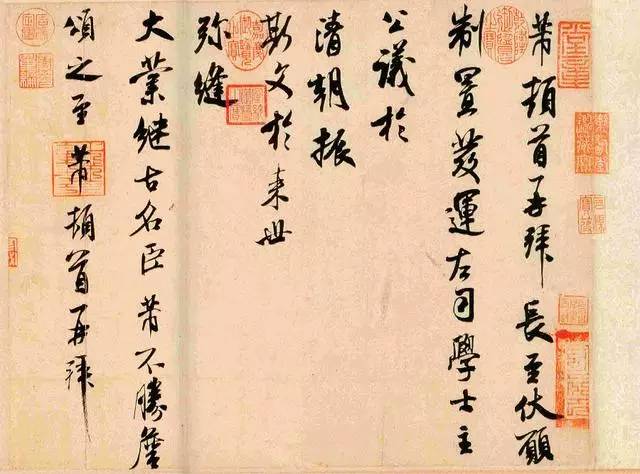 芾頓首再拜長至伏願
制置發運左司學士主
公議於
清朝振
斯文於來世
弥縫
大業继古名臣芾不勝詹
頌之至芾頓首再拜